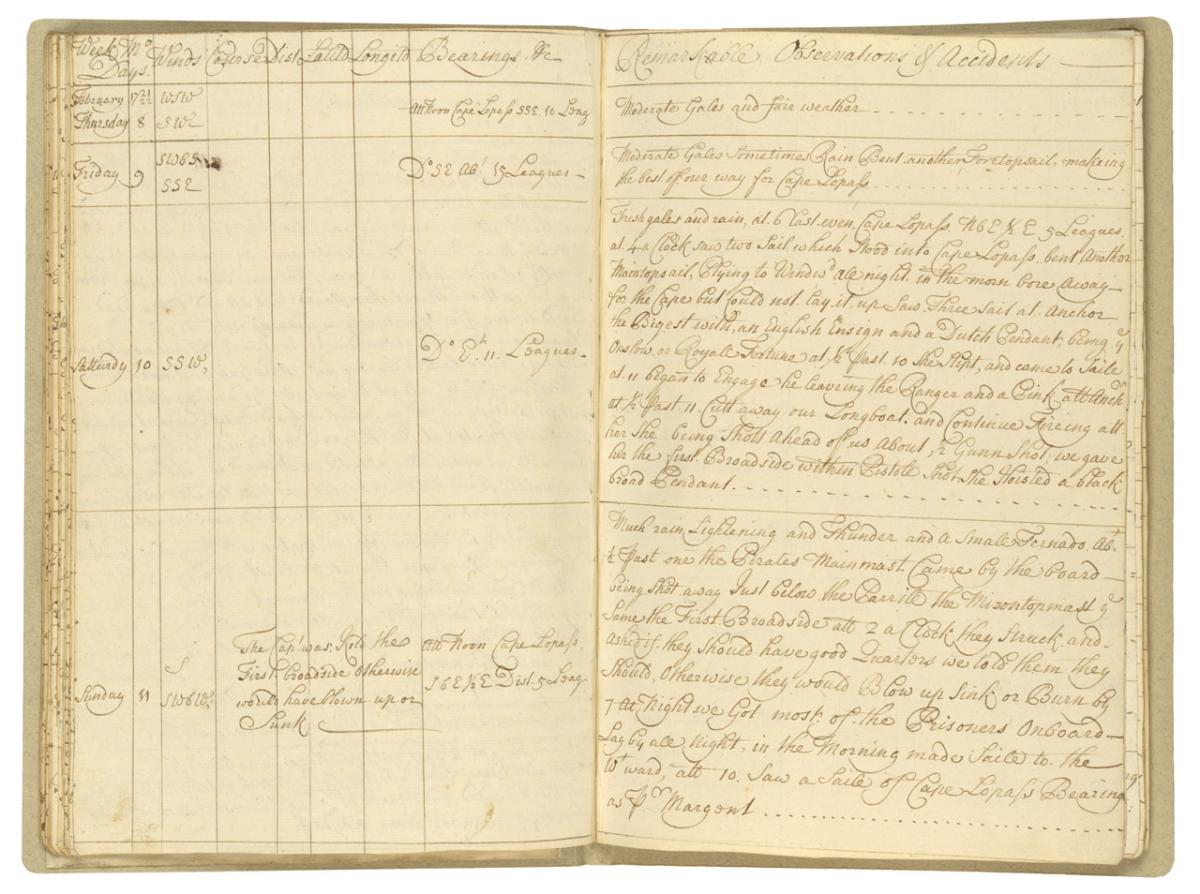 Week Days. Mo Winds Course Dist Latitd Longitd Bearings &c
February 17 21/22 WSW
Thursday 8 SW Att Noon Cape Lopass SSE. 10 Leag
Friday 9 SWbS SSE Do. SE Abt 15 Leagues
Satturdy 10 SSW, Do Et. 11. Leagues
Sunday 11 S
The Capt was Kild the
First broadside Otherwise
would have blown up or
Sunk
Att Noon Cape Lopass.
SbE½E Dist. 5 Leag
Remarkable Observations & Accidents
Moderate Gales and fair weather
Moderate Gales Sometimes Rain Bent another Foretopsail, makeing
the best of our way for Cape Lopass
Fresh gales and rain, at. 6 last even. Cape Lopass. NbE½E 5 Leagues.
at. 4 a Clock saw two Sail which Stood into Cape Lopass. bent Another
Maintopsail, Plying to Windwd ale night. in the morn bore Away
for the Cape but Could not Lay it up Saw Three Sail at. Anchor
the Bigest with, an English Ensign and a Dutch Pendant, being ye
Onslow. or Royall Fortune at ½ Past. 10 She Slipt, and came to Saile
at 11 began to Engage he leaveing the Ranger and a Pink att Anchr
at ½ Past. 11. Cutt away our Longboat. and Continue Fireing att
her She being Shott Ahead of us About ½ Gunn Shot, we gave
her the first. Broadside within Pistole Shot. She Hoisted a black
broad Pendant.
Much rain Lightening and Thunder and a Small Tornado. Abt.
½ Past one the Pirates Mainmast Came by the board
being Shot away Just below the Parrile the Mizontopmast ye
Same the First Broadside att 2 a Clock they Struck and
asked if they Should have good Quarters we told them they
Should, Otherwise they would Blow up Sink or Burn by
7 At Night we Got most of the Prisoners Onboard
Lay by ale Night. in the Morning made Saile to the
Wtward, att 10. Saw a Saile of Cape Lopass Bearing
as Pr Margent